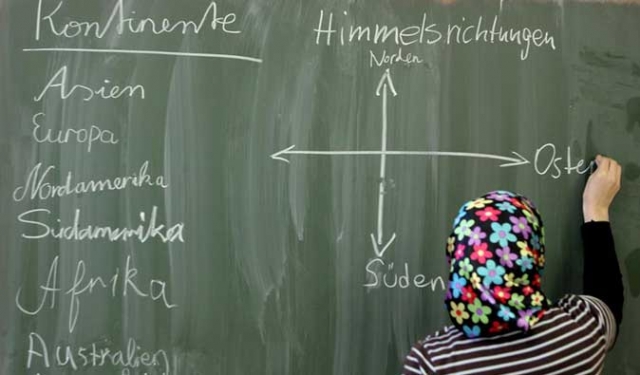 Kontinente
Asien
Europa
Nordamerika
Südamerika
Afrika
Australien
Himmelsrichtungen
Norden
Oste
Süden